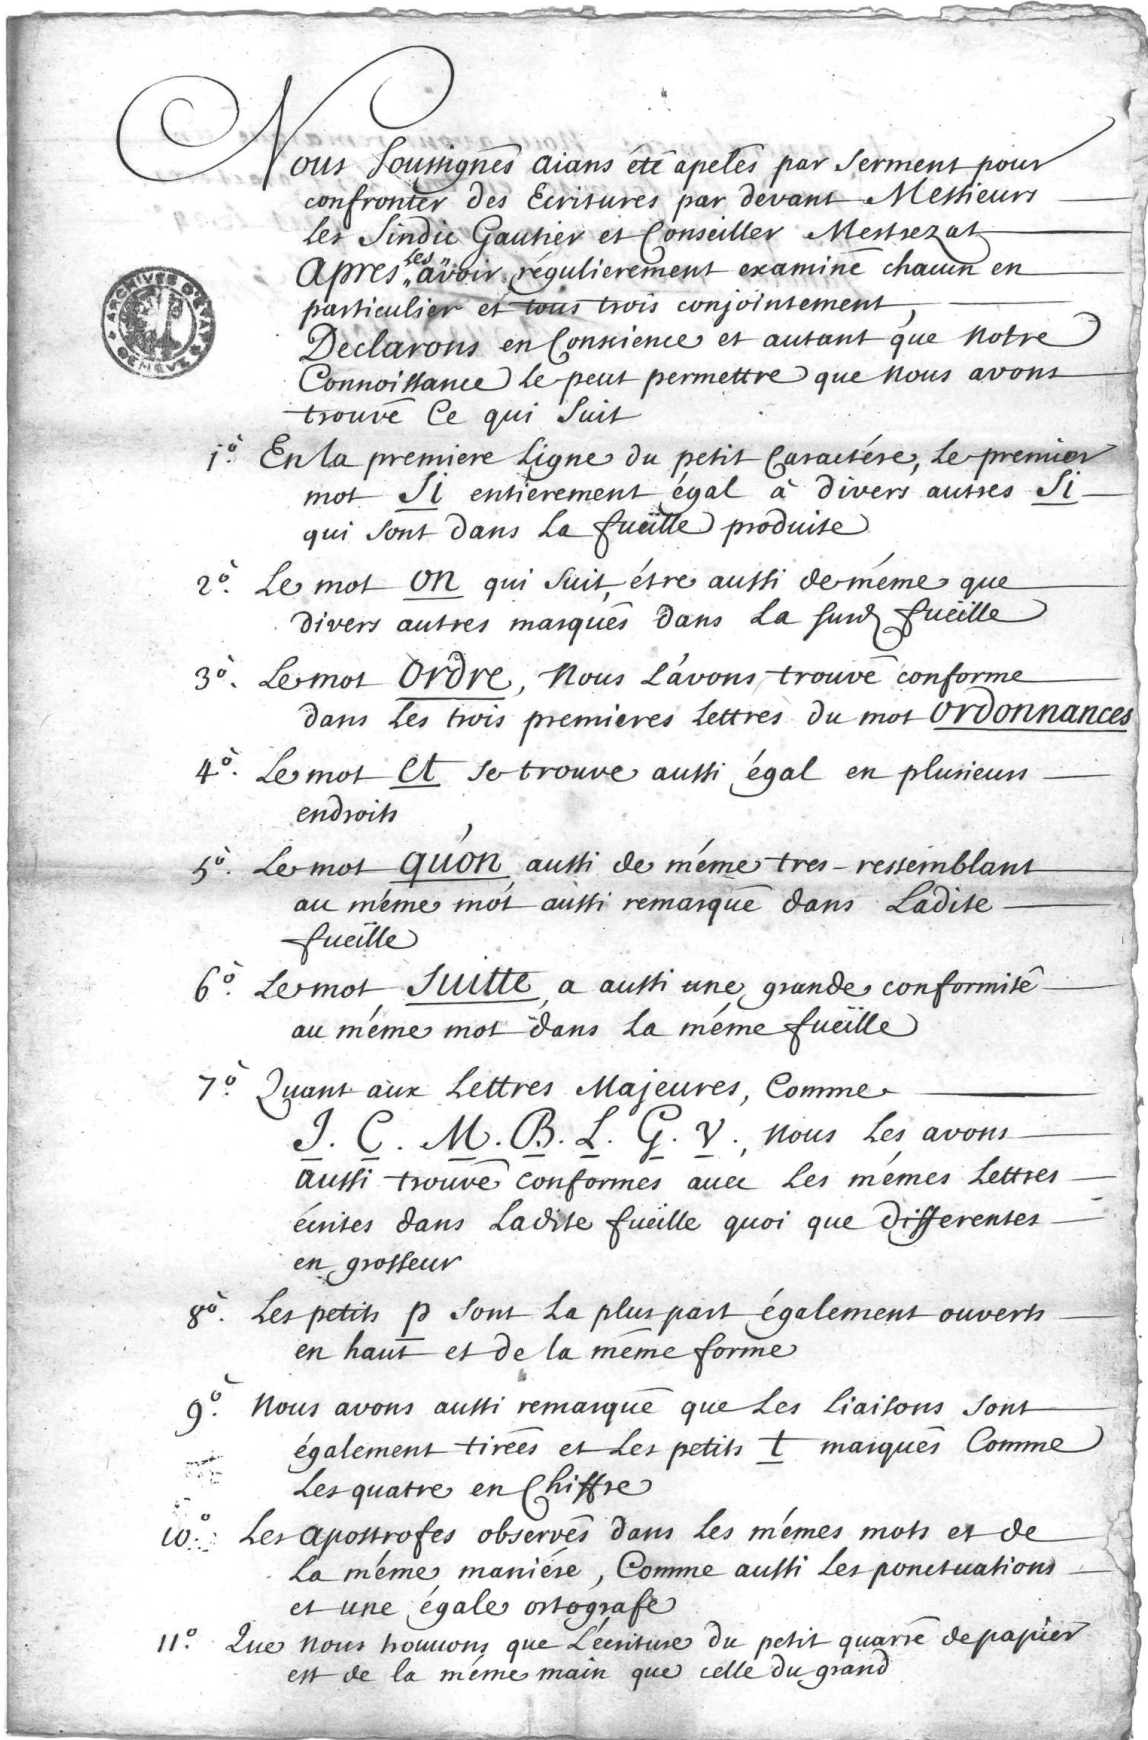 Nous Soussignés aians été apelés par Serment pour
confronter des Ecritures par devant Messieurs
Les Sindic Gautier et Conseiller Mestrezat
Apres les avoir régulierement examiné chacun en
particulier et tous trois conjointement,
Declarons en Consience et autant que Notre
Connoissance le peut permettre que Nous avons
trouvé Ce qui Suit
1º. En la premiere Ligne du petit Caractére, Le premier
mot Si entierement égal à divers autres Si
qui sont dans La fueïlle produite
2º. Le mot on qui Suit, étre aussi de méme que
divers autres marqués dans La susd fueïlle
3º. Le mot ordre, Nous L'avons trouvé conforme
dans Les trois premieres Lettres du mot ordonnances
4º. Le mot et se trouve aussi égal en plusieurs
endroits
5º. Le mot qu'on aussi de méme tres-ressemblant
au méme mot aussi remarqué dans Ladite
fueïlle
6º. Le mot Suitte, a aussi une grande conformité
au méme mot dans La méme fueïlle
7º. Quant aux Lettres Majeures, Comme
J. C. M. B. L. G. V., Nous Les avons
aussi trouvé conformes avec Les mémes Lettres
écrites dans Ladite fueïlle quoi que differentes
en grosseur
8º. Les petits p sont La pluspart également ouverts
en haut et de la méme forme
9º. Nous avons aussi remarqué que Les Liaisons Sont
également tirées et Les petits t marqués Comme
Les quatre en Chiffre
10º. Les apostrofes observés dans Les mémes mots et de
La méme maniére, Comme aussi Les ponctuations
et une égale ortografe
11º. Que Nous trouvons que L'écriture du petit quarré de papier
est de la méme main que celle du grand